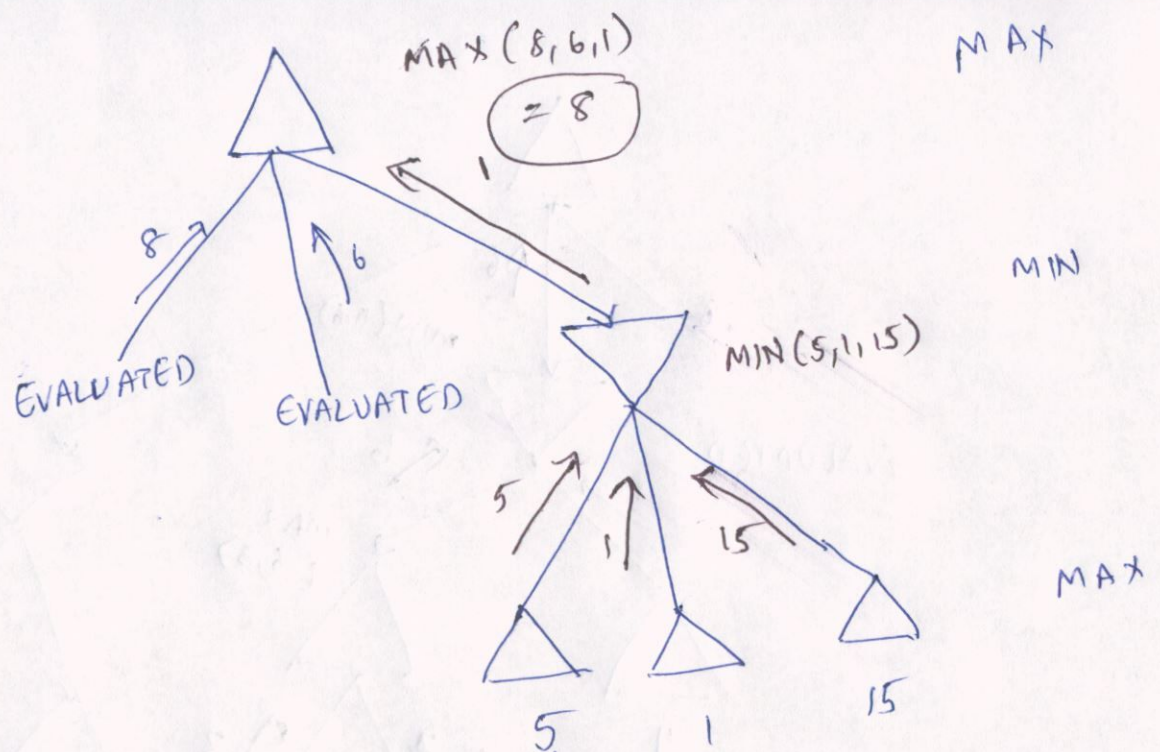 MAX (8,6,1)
= 8
MAX
1
8
6
MIN
EVALUATED
EVALUATED
MIN(5,1,15)
5
1
15
MAX
5
1
15